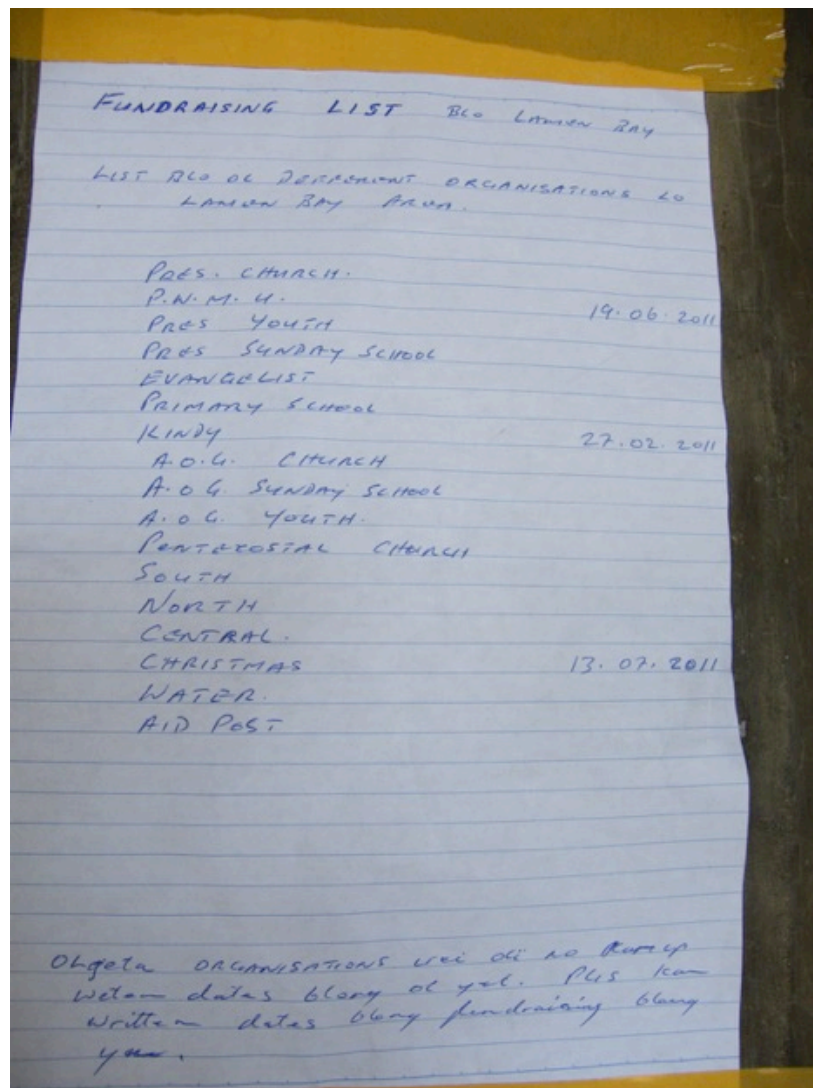 FUNDRAISING LIST BLO LAMEN BAY
LIST BLO OL DEFFERENT ORGANISATIONS LO
LAMEN BAY AREA.
PRES. CHURCH.
P.W.M.U.
PRES YOUTH 19.06.2011
PRES SUNDAY SCHOOL
EVANGELIST
PRIMARY SCHOOL
KINDY 27.02.2011
A.O.G. CHURCH
A.O.G. SUNDAY SCHOOL
A.O.G. YOUTH.
PENTECOSTAL CHURCH
SOUTH
NORTH
CENTRAL.
CHRISTMAS 13.07.2011
WATER.
AID POST
Olgeta ORGANISATIONS we i di no Kamup
wetem dates blong ol yet. Plis kam
writtem dates blong fundraising blong
you.